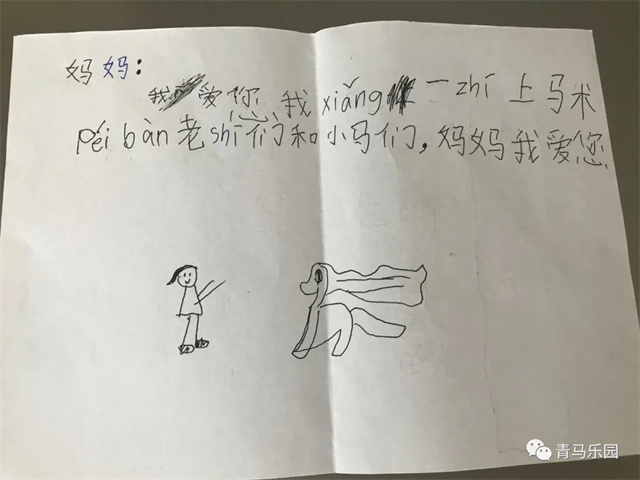 妈妈：
我爱您 我xiǎng一zhí上马术
péi bàn老shī们和小马们，妈妈我爱您
青马乐园